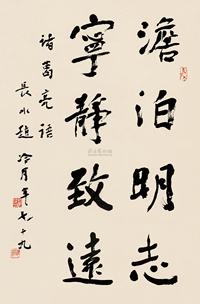 澹泊明志
寧靜致遠
諸葛亮語
長水趙冷月年七十九